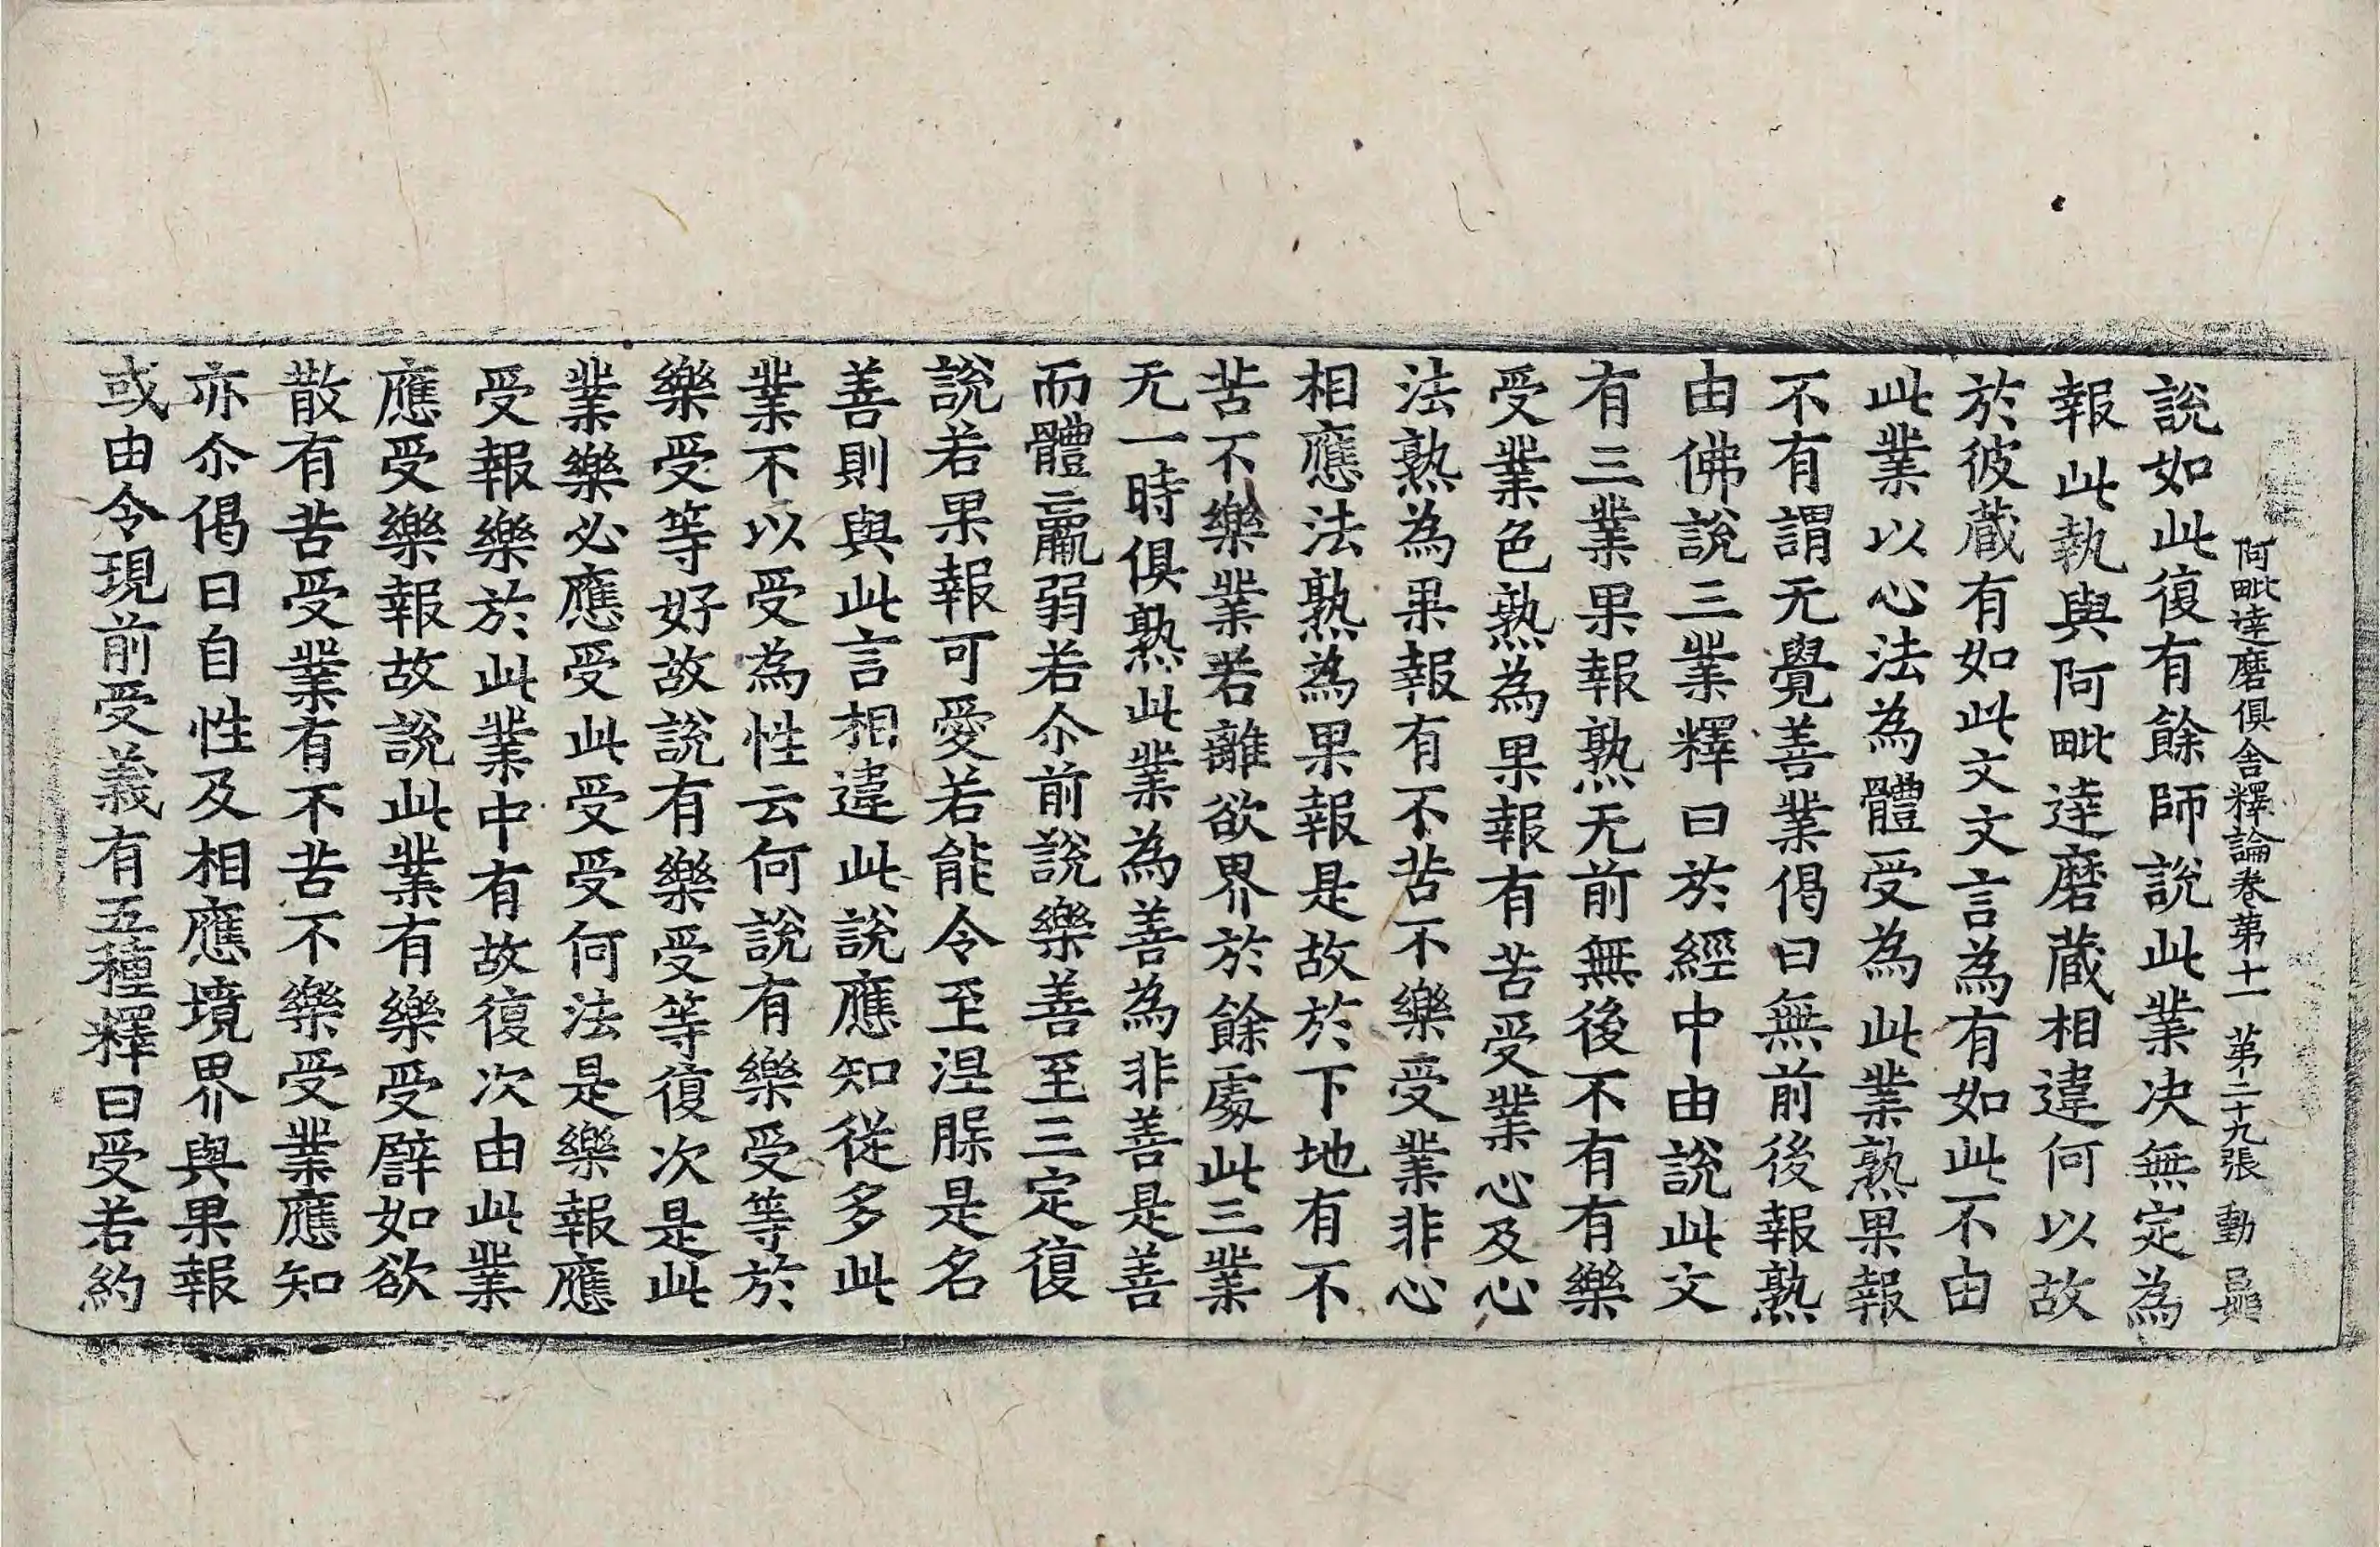 阿毗達磨俱舍釋論卷第十一 第二十九張 動
說如此復有餘師說此業决無定為
報此執與阿毗達磨蔵相違何以故
於彼蔵有如此文文言為有如此不由
此業以心法為體受為此業熟果報
不有謂无覺善業偈曰無前後報熟
由佛說三業釋曰於經中由說此文
有三業果報熟无前無後不有有樂
受業色熟為果報有苦受業心及心
法熟為果報有不苦不樂受業非心
相應法熟為果報是故於下地有不
苦不樂業若離欲界於餘處此三業
无一時俱熟此業為善為非善是善
而體羸弱若尒前說樂善至三定復
說若果報可愛若能令至涅脲是名
善則與此言相違此說應知從多此
業不以受為性云何說有樂受等於
樂受等好故說有樂受等復次是此
業樂必應受此受受何法是樂報應
受報樂於此業中有故復次由此業
應受樂報故說此業有樂受譬如欲
散有苦受業有不苦不樂受業應知
亦尒偈曰自性及相應境界與果報
或由令現前受義有五種釋曰受若約